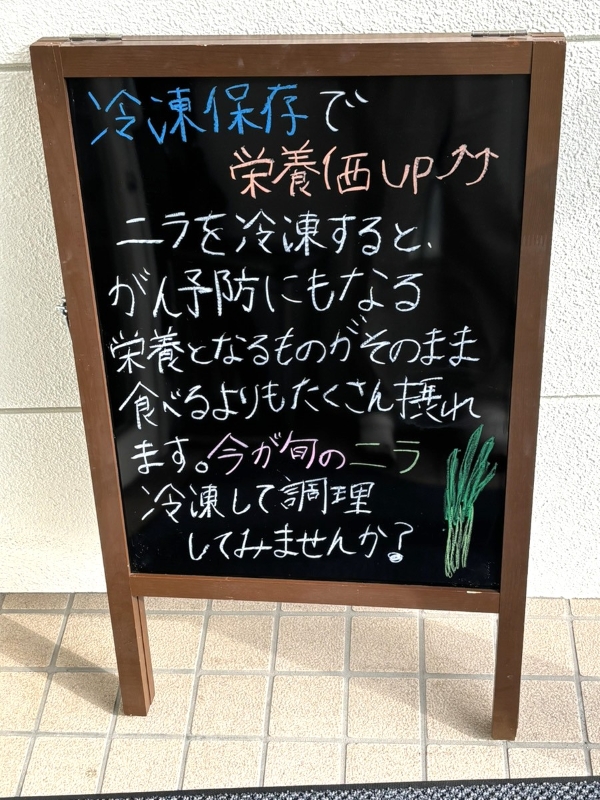 冷凍保存で
栄養価UP↑↑
ニラを冷凍すると、
がん予防にもなる
栄養となるものがそのまま
食べるよりもたくさん摂れ
ます。今が旬のニラ
冷凍して調理
してみませんか?